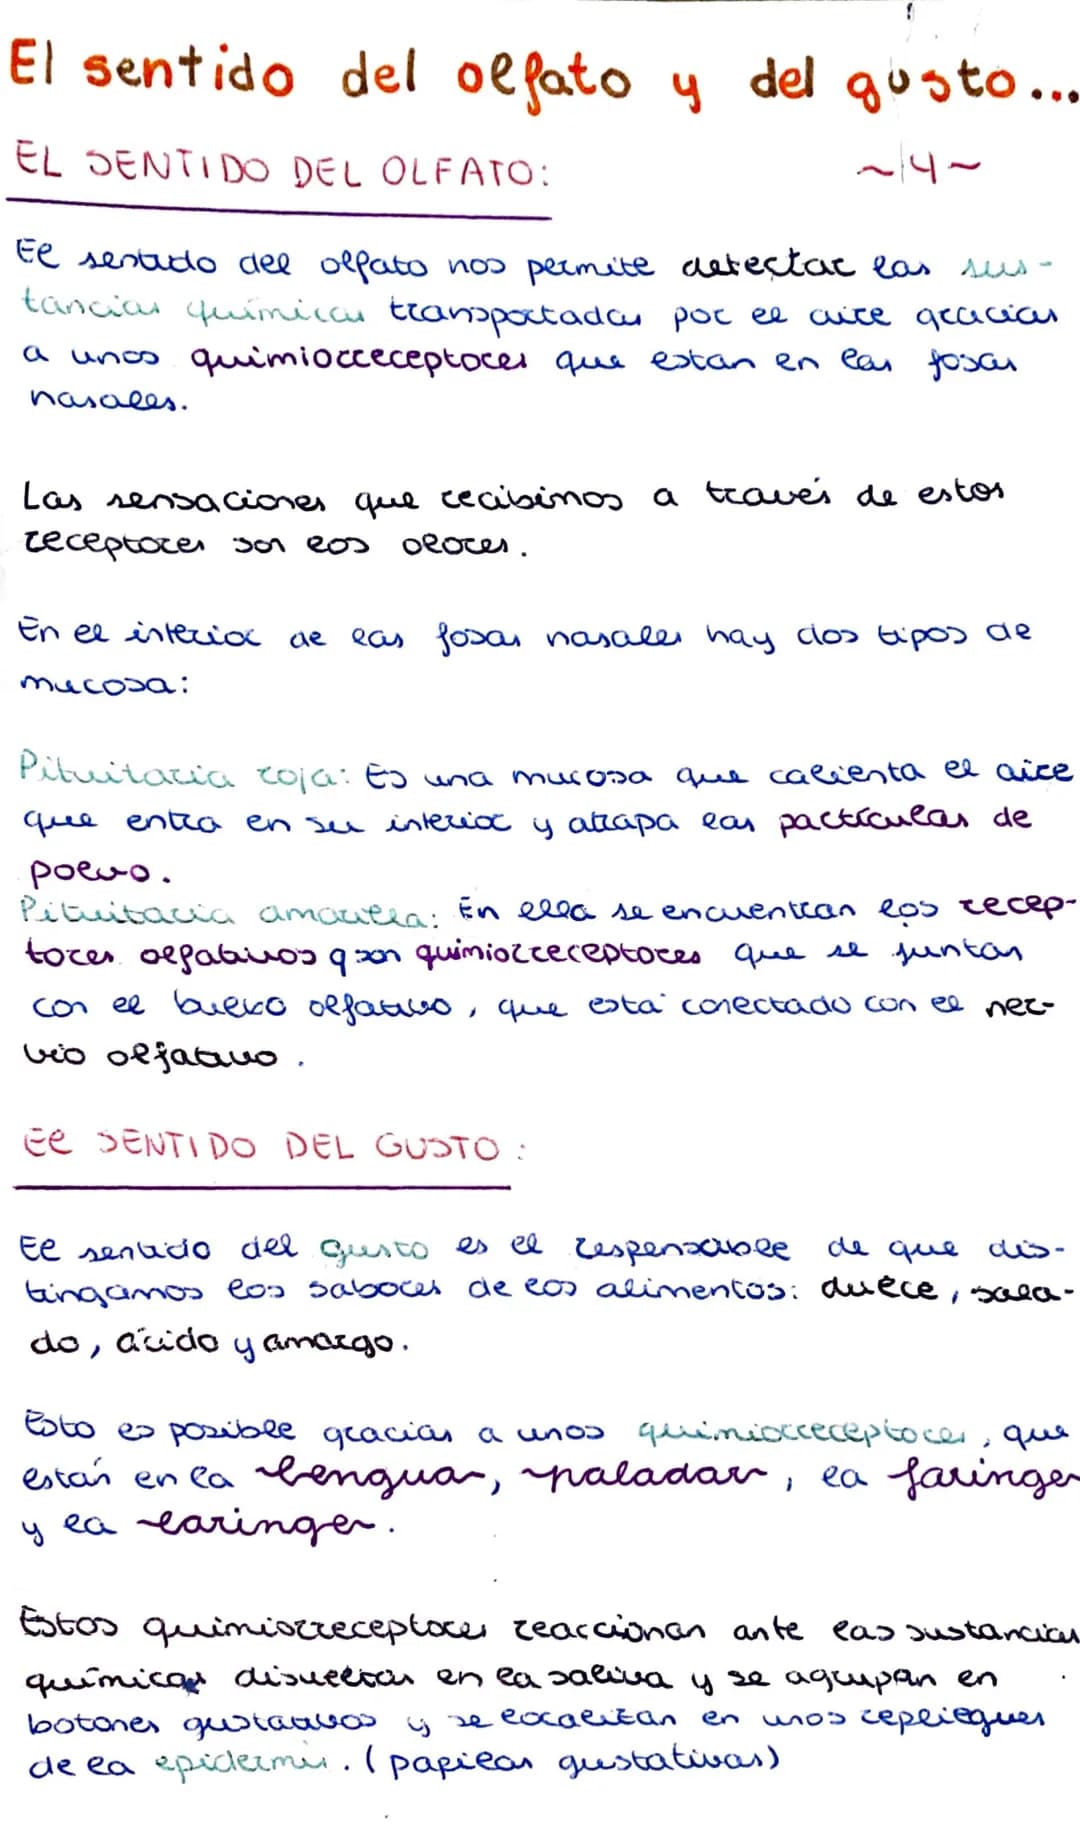 El sentido del olfato y del gusto...
EL SENTIDO DEL OLFATO:
~14~
El sentido del olfato nos permite detectar las sus-
tancias químicas transportadas por el aire gracias
a unos quimiorreceptores que estan en las fosas
nasales.
Las sensaciones que recibimos a través de estos
receptores son los olores.
En el interior de las fosas nasales hay dos tipos de
mucosa:
Pituitaria roja: Es una mucosa que calienta el aire
que entra en su interior y atrapa las partículas de
polvo.
Pituitaria amarilla: En ella se encuentran los recep-
tores olfativos q son quimiorreceptores que se juntan
con el bulbo olfativo, que está conectado con el ner-
vio olfativo.
El SENTIDO DEL GUSTO:
El sentido del gusto es el responsable de que dis-
tingamos los sabores de los alimentos: dulce, sala-
do, ácido y amargo.
Esto es posible gracias a unos quimiorreceptores, que
están en la lengua, paladar, la faringe
y la laringe.
Estos quimiorreceptores reaccionan ante las sustancias
químicas disueltas en la saliva y se agrupan en
botones gustativos y se localizan en unos repliegues
de la epidermis. (papilas gustativas)